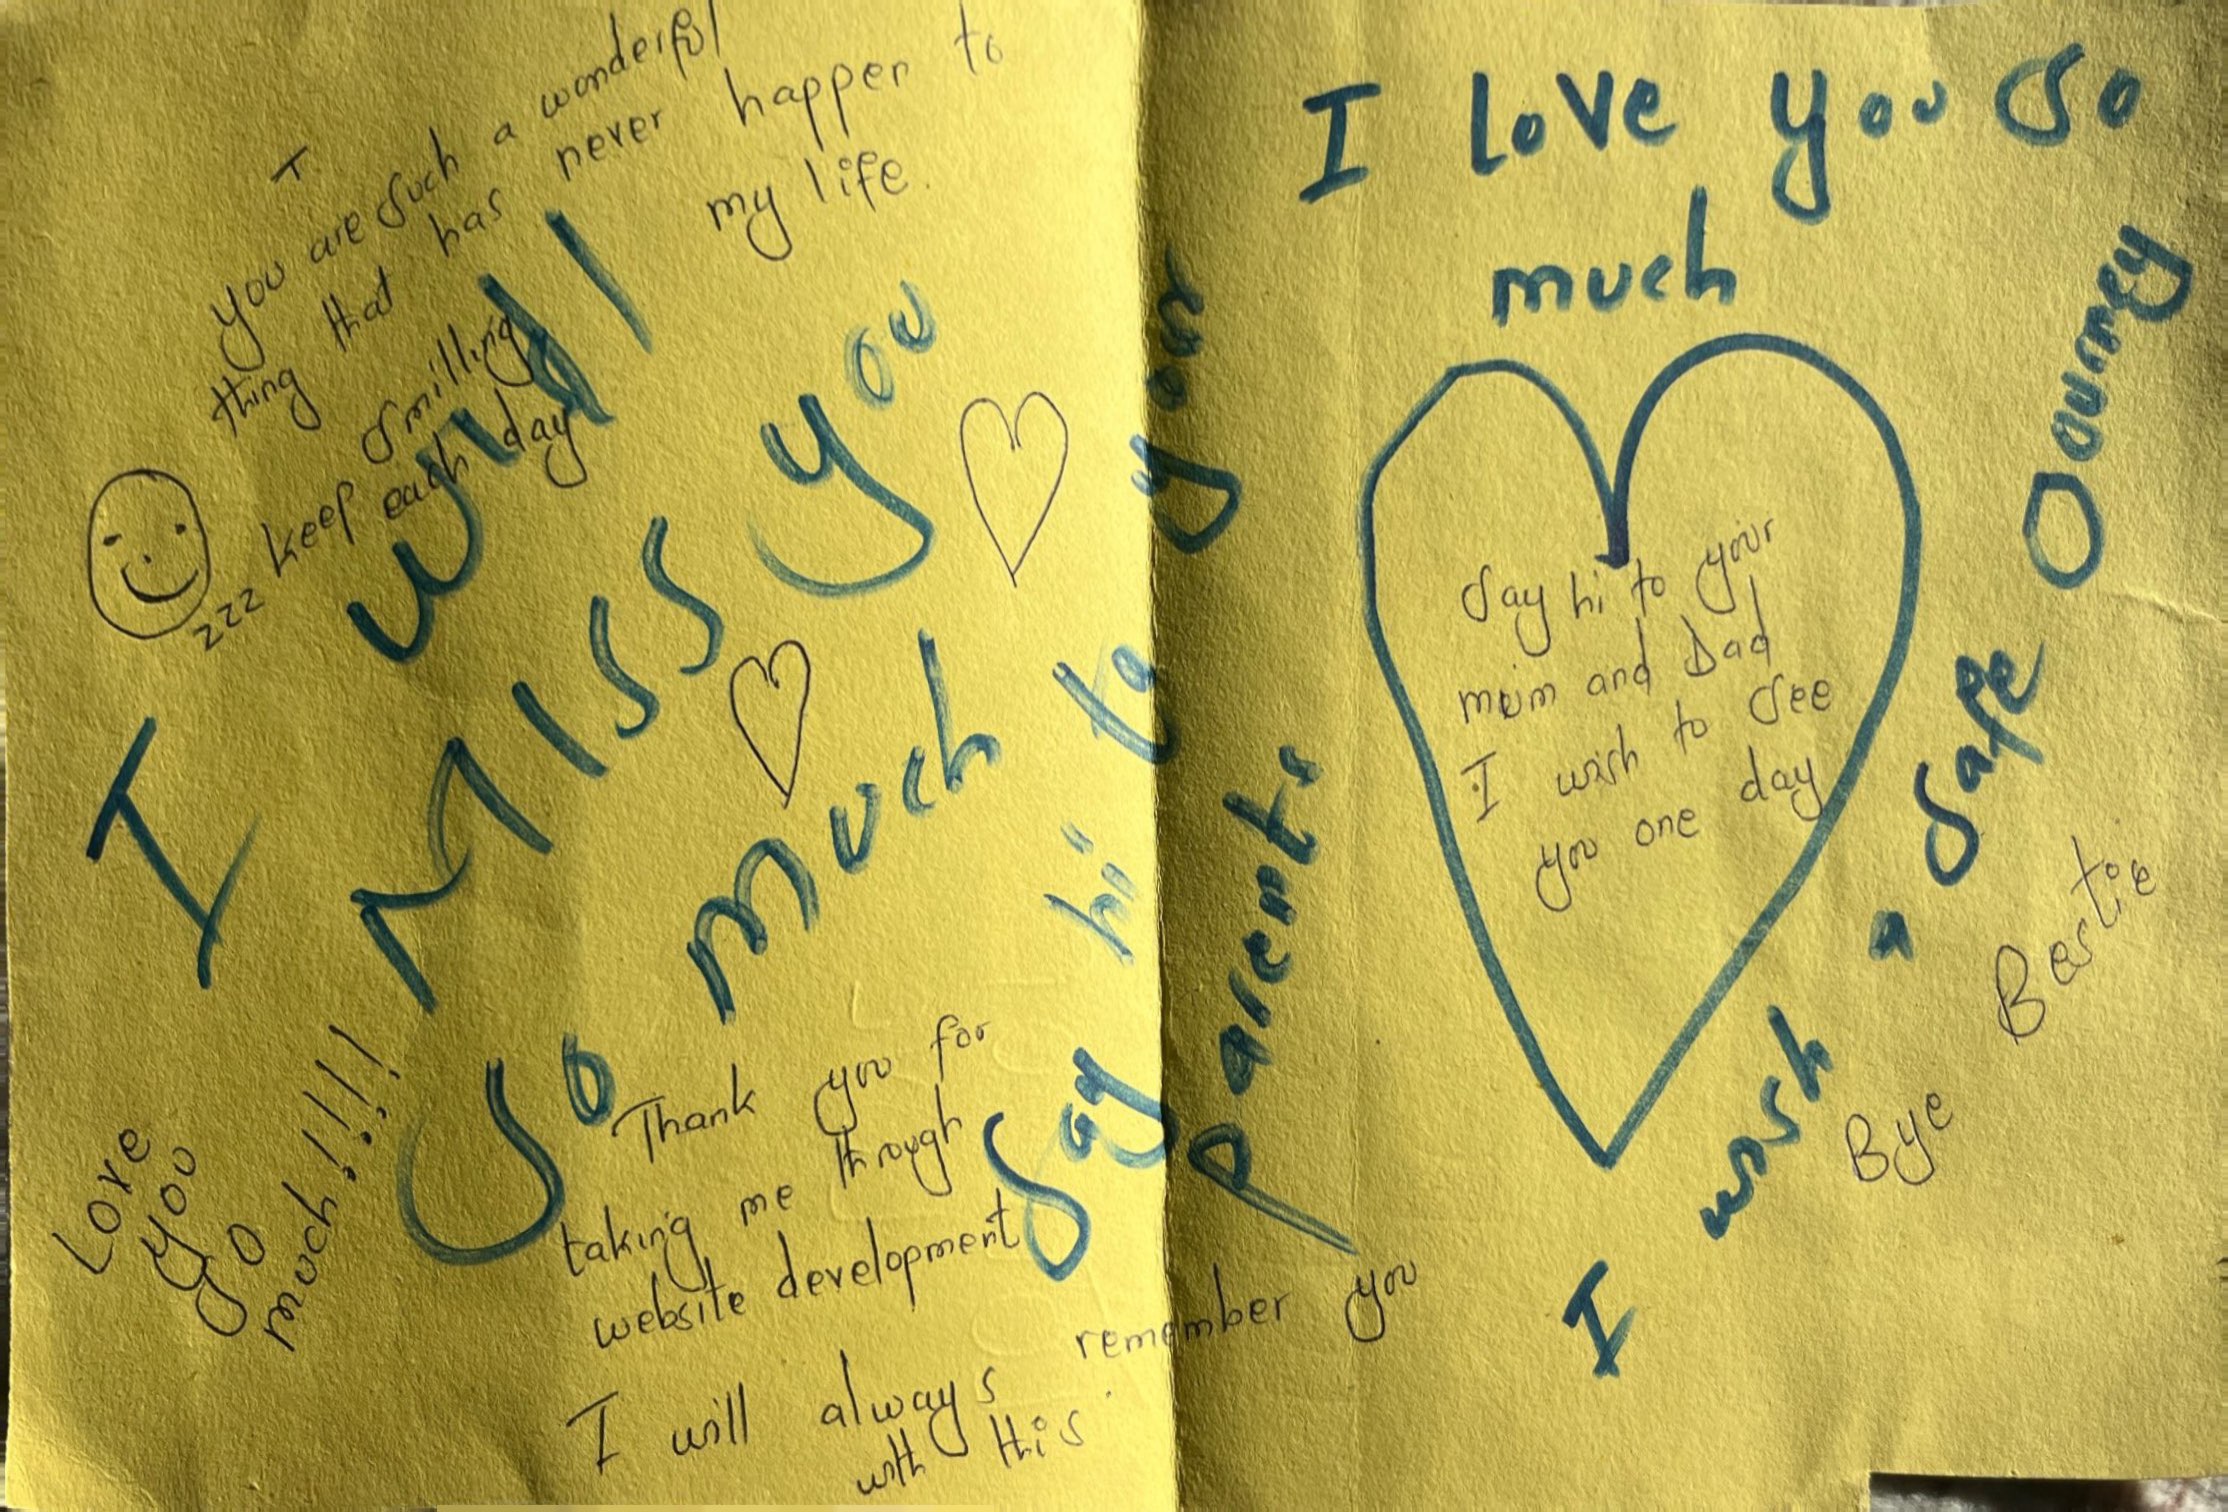 you are such a wonderful
thing that has never happen to
my life.
keep smilling
each day
zzz
I will
Miss you
so much
Love
you
so
much!!!!!
Thank you for
taking me through
website development
I will always remember you
with this
Say hi to your
parents
I love you so
much
Say hi to your
mum and Dad
I wish to see
you one day
I wish a safe Journey
Bye Bestie